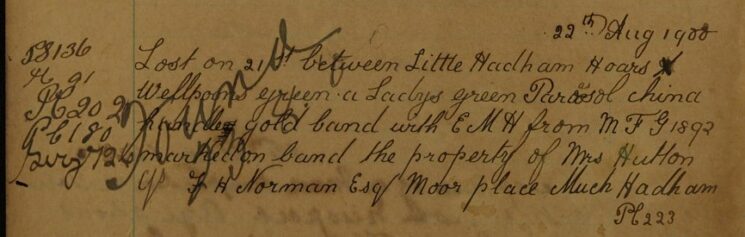 22nd Aug 1900
PS 136
Lost on 21st between Little Hadham Hoars X
91
Wellpons green a Ladys green Parasol china
PC 202
handle gold band with E M H from M F G 1892
PC 180
marked on band the property of Mrs Hutton
Sergt 724
c/o F H Norman Esq Moor place Much Hadham
PC 223
Found